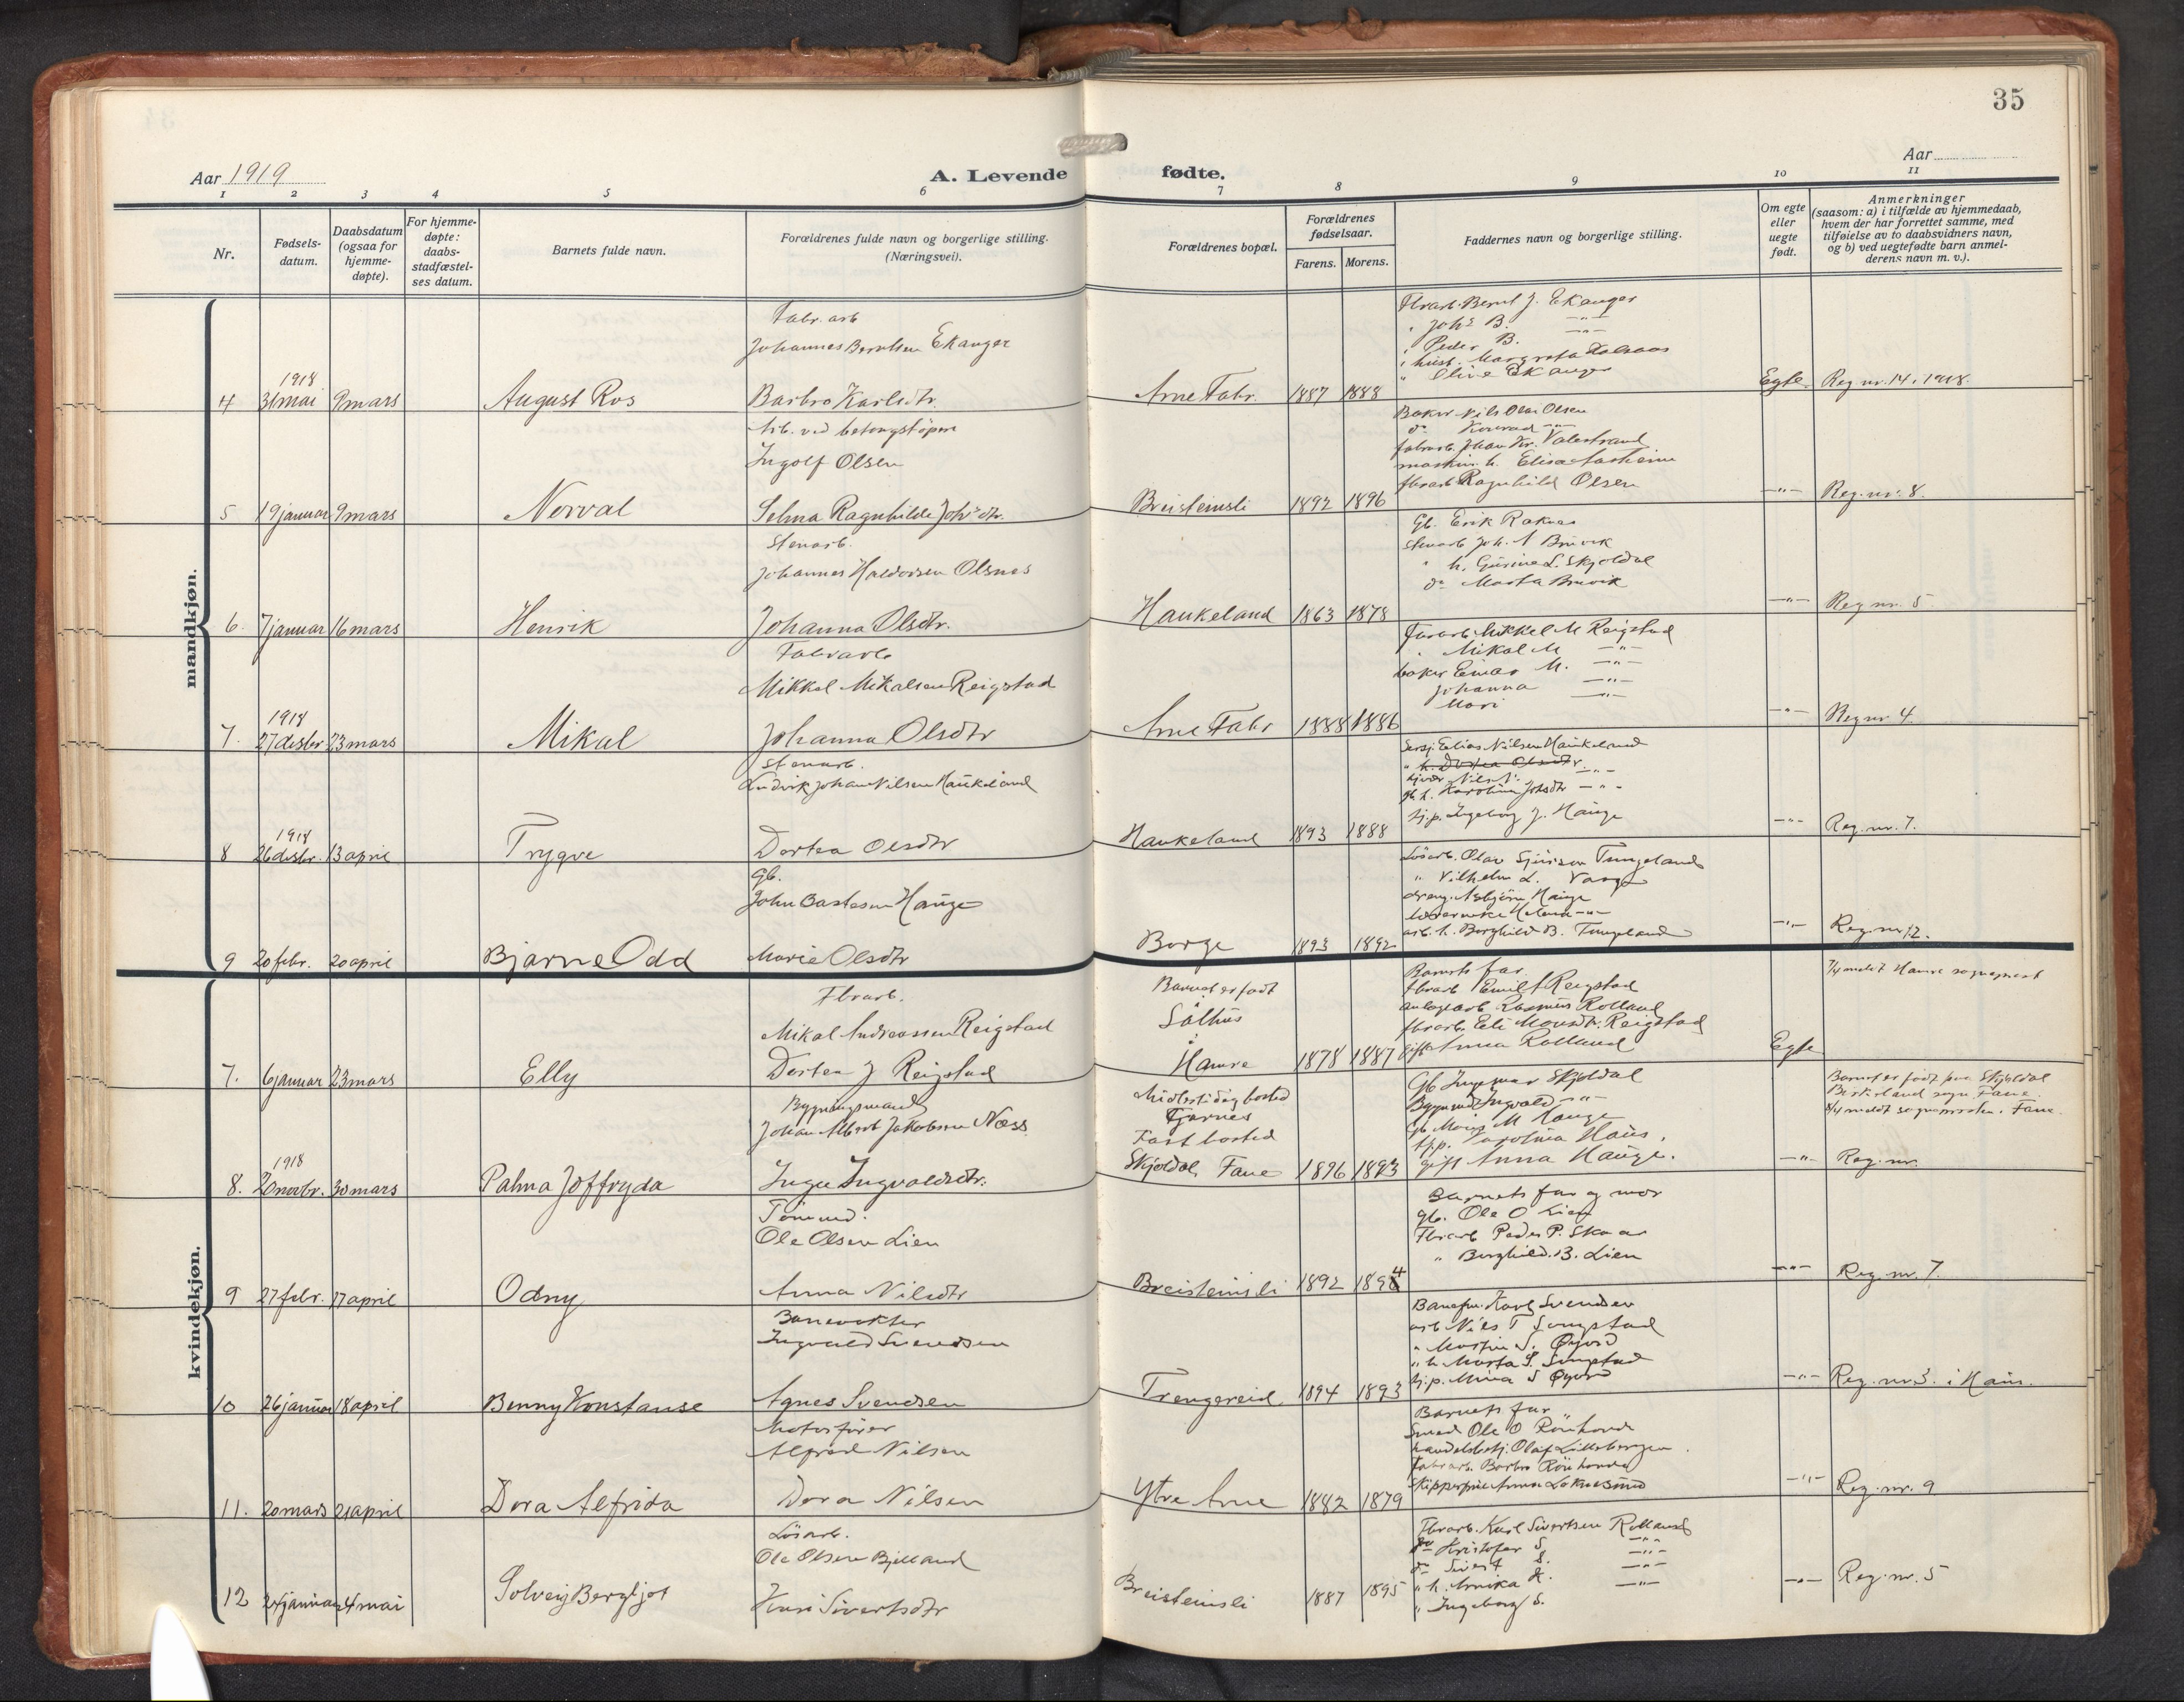 35
Aar 1919
A. Levende fødte.
Aar
1 2 3 4 5 6 7 8 9 10 11
Nr.
Fødsels-
datum.
Daabsdatum
(ogsaa for
hjemme-
døpte).
For hjemme-
døpte:
daabs-
stadfæstel-
ses datum.
Barnets fulde navn.
Forældrenes fulde navn og borgerlige stilling.
(Næringsvei).
Forældrenes bopæl.
Forældrenes
fødselsaar.
Farens. Morens.
Faddernes navn og borgerlige stilling.
Om egte
eller
uegte
født.
Anmerkninger
(saasom: a) i tilfælde av hjemmedaab,
hvem der har forrettet samme, med
tilføielse av to daabsvidners navn,
og b) ved uegtefødte barn anmel-
derens navn m. v.).
mandkjøn.
4
1918
31 mai
9 mars
August Ros
Fabr. arb
Johannes Berntsen Ekanger
Barbro Karlsdtr.
Arne Fabr.
1887 1888
Fbrarb. Bernt J. Ekanger
" Johs B. -"-
" Peder B. -"-
" hust. Margreta
" Olive Ekanger
Egte
Reg. nr. 14 i 1918.
5
19 januar
9 mars
Norval
Arb. ved betongstöperi
Ingolf Olsen
Selma Ragnhilde Johs dtr.
Breisteinsli
1892 1896
Baker Nils Olai Olsen
do Konrad -"-
fabrarb. Johan Kr. Valestrand
maskin. h. Elisa Aasheim
fbrarb. Ragnhild Olsen
-"-
Reg. nr. 8.
6.
7 januar
16 mars
Henrik
Stenarb.
Johannes Haldorsen Olsnes
Johanna Olsdtr.
Haukeland
1863 1878
Gb. Erik Raknes
Stenarb Joh. A Bruvik
" h. Gurine L. Skjoldal
do Marta Bruvik
-"-
Reg nr. 5
7.
1918
27 desbr.
23 mars
Mikal
Fabrarb
Mikkel Mikalsen Reigstad
Johanna Olsdtr
Arne Fabr
1888 1886
Fabrarb. Mikkel M Reigstad
" Mikal M -"-
baker Einar M. -"-
Johanna -"-
Mari
-"-
Reg nr. 4.
8
1918
26 desbr.
13 april
Trygve
Stenarb.
Ludvik Johan Nilsen Haukeland
Dortea Olsdtr
Haukeland
1893 1888
Elias Nilsen Haukeland
" h. Dortea Olsdtr.
Nils N. -"-
gb. h. Karolina Johsdtr -"-
tj.p. Ingeborg J. Hauge
-"-
Reg. nr. 7.
9
20 febr.
20 april
Bjarne Odd
Gb.
John Bastesen Hauge
Marie Olsdtr
Borge
1893 1892
Lösarb. Olav Sjursen Tungeland
" Vilhelm L.
dreng. Asbjörn Hauge
-"-
arb. h. Borghild B. Tungeland
-"-
Reg. nr 12.
kvindekjøn.
7.
6 januar
23 mars
Elly
Fbrarb.
Mikal Andreassen Reigstad
Dortea J Reigstad
Barnet er født
Salhus
i
Hamre
1878 1887
Barnets far
fbrarb Emil A Reigstad
anlegsarb. Rasmus Rolland
fbrarb. Eli Monsdtr. Reigstad
gift Anna Rolland
Egte
7/4 meldt Hamre sogneprest
8.
1918
20 novbr.
30 mars
Palma Joffryda
Bygningsmand
Johan Albert Jakobsen Næss
Inga Ingvaldsdtr.
Midlertidig bosted
Garnes
Fast bosted
Skjoldal, Fane
1896 1893
Gb Ingemar Skjoldal
Bygnmd. Ingvald -"-
Gb Mons M Hauge
tj.p. Karolina Haus.
gift Anna Hauge.
-"-
Barnet er født paa Skjoldal
Birkeland sogn Fane.
8/4 meldt sognepresten i Fane.
Reg. nr.
9
27 febr.
17 april
Odny
Tömmd.
Ole Olsen Lien
Anna Nilsdtr
Breisteinsli
1892 1894
Barnets far og mor
gb. Ole O Lien
Fbrarb Peder P. Skaar
" Borghild B. Lien
-"-
Reg. nr. 7.
10
26 januar
18 april
Benny Konstanse
Banevokter
Ingvald Svendsen
Agnes Svendsen
Trengereid.
1894 1893
Banefm. Karl Svendsen
arb Nils T
" Martin S. Öyord
" h. Marta S.
tj.p. Mina S Öyord
-"-
Reg. nr 3. i Haus.
11.
20 mars
21 april
Dora Alfrida
Motorfører
Alfred Nilsen
Dora Nilsen
Ytre Arne
1882 1879
Barnets far
Smed Ole O Rönhovde
handelsbetj. Olaf Lillebergen
fabrarb. Barbro Rönhovde
Skipperfrue Anna Loknesund
-"-
Reg. nr. 9
12
24 januar
4 mai
Solveig Bergljot
Lösarb.
Ole Olsen Bjelland
Kari Sivertsdtr
Breisteinsli
1887 1895
Fbrarb. Karl Sivertsen Rolland
do Kristofer S. -"-
do Sivert S. -"-
" h. Annika K. -"-
" Ingeborg S.
-"-
Reg. nr. 5